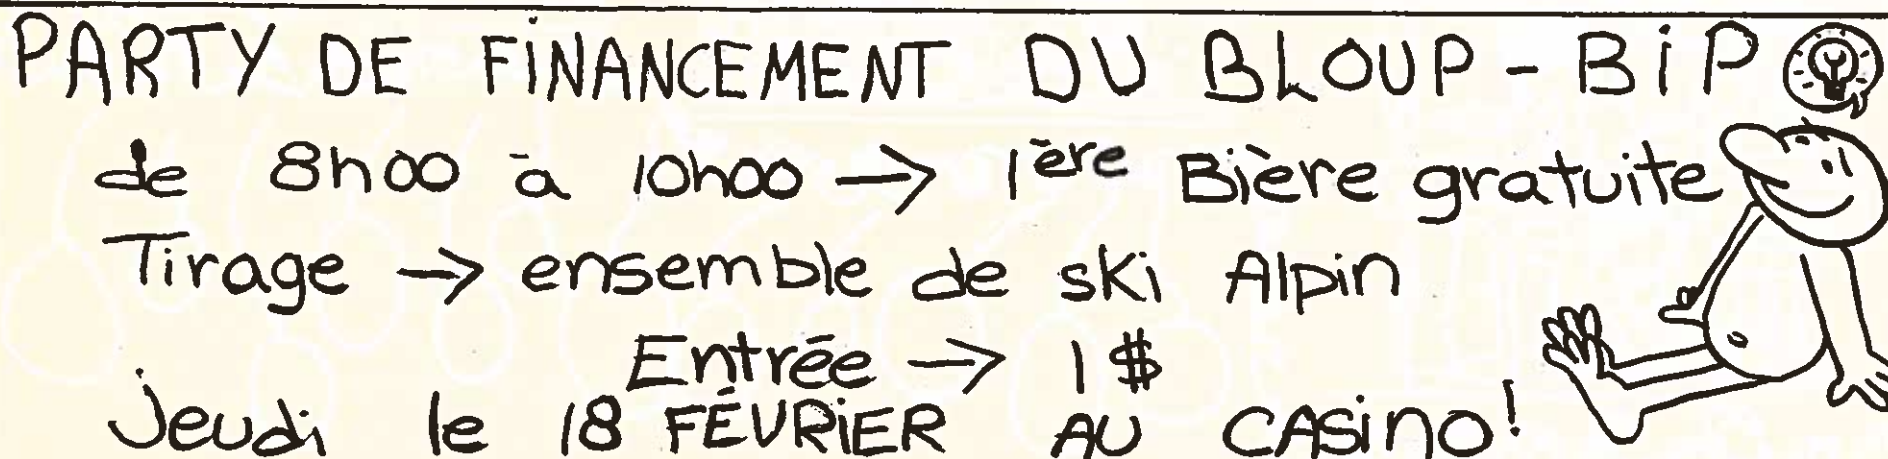 PARTY DE FINANCEMENT DU BLOUP - BIP
de 8h00 à 10h00 → 1ère Bière gratuite
Tirage → ensemble de ski Alpin
Entrée → 1$
Jeudi le 18 FÉVRIER AU CASINO!